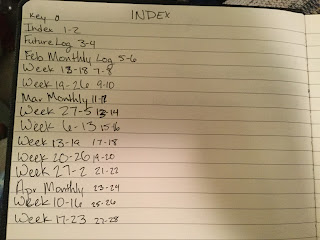 Key 0
INDEX
Index 1-2
Future Log 3-4
Feb Monthly Log 5-6
Week 13-18 7-8
Week 19-26 9-10
Mar Monthly 11-12
Week 27-5 13-14
Week 6-13 15-16
Week 13-19 17-18
Week 20-26 19-20
Week 27-2 21-22
Apr Monthly 23-24
Week 10-16 25-26
Week 17-23 27-28